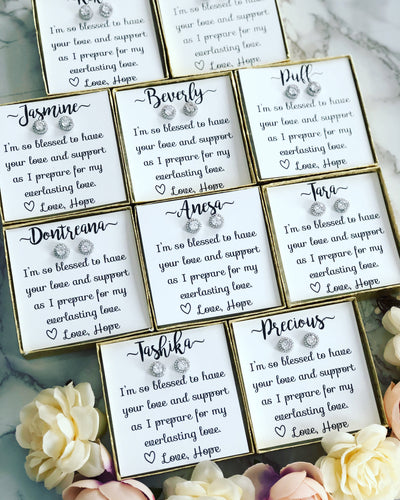 I'm so blessed to have
your love and support
as I prepare for my
everlasting love.
Love, Hope
I'm so blessed to have
your love and support
as I prepare for my
everlasting love.
Love, Hope
Jasmine
I'm so blessed to have
your love and support
as I prepare for my
everlasting love.
Love, Hope
Beverly
I'm so blessed to have
your love and support
as I prepare for my
everlasting love.
Love, Hope
Puff
I'm so blessed to have
your love and support
as I prepare for my
everlasting love.
Love, Hope
Dontreana
I'm so blessed to have
your love and support
as I prepare for my
everlasting love.
Love, Hope
Anesa
I'm so blessed to have
your love and support
as I prepare for my
everlasting love.
Love, Hope
Tara
I'm so blessed to have
your love and support
as I prepare for my
everlasting love.
Love, Hope
Tashika
I'm so blessed to have
your love and support
as I prepare for my
everlasting love.
Love, Hope
Precious
I'm so blessed to have
your love and support
as I prepare for my
everlasting love.
Love, Hope